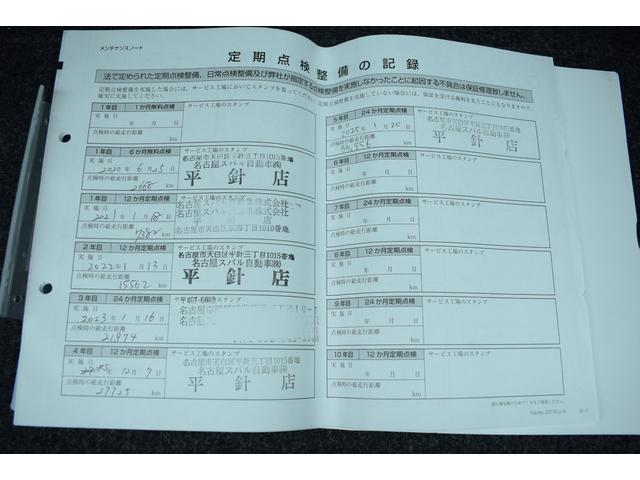 メンテナンスノート
定期点検整備の記録
法で定められた定期点検整備、日常点検整備及び弊社が指定する点検整備を実施しなかったことに起因する不具合は保証修理致しません。
定期点検整備を実施した場合には、サービス工場においてスタンプを買ってください。
定期点検整備を実施していない場合には、保証を受ける権利を失うことにもなりますので、
1年目 1か月無料点検 サービス工場のスタンプ
実施日 年 月 日
点検時の総走行距離
km
1年目 6か月無料点検 サービス工場のスタンプ
実施日 2020年 6月25日
点検時の総走行距離
km
名古屋市天白区平針三丁目1015番地
名古屋スバル自動車㈱
平針店
1年目 12か月定期点検 サービス工場のスタンプ
実施日 2021年 1月18日
点検時の総走行距離
km
2年目 12か月定期点検 サービス工場のスタンプ
実施日 2022年 1月13日
点検時の総走行距離
15562 km
名古屋市天白区平針三丁目1015番地
名古屋スバル自動車㈱
平針店
3年目 24か月定期点検 サービス工場のスタンプ
実施日 2023年 1月16日
点検時の総走行距離
21,974 km
4年目 12か月定期点検 サービス工場のスタンプ
実施日 年12月7日
点検時の総走行距離
29725 km
名古屋市天白区平針三丁目1015番地
名古屋スバル自動車㈱
平針店
5年目 24か月定期点検 サービス工場のスタンプ
実施日 2025年 1月20日
点検時の総走行距離
33,556 km
平針店
6年目 12か月定期点検 サービス工場のスタンプ
実施日 年 月 日
点検時の総走行距離
km
7年目 24か月定期点検 サービス工場のスタンプ
実施日 年 月 日
点検時の総走行距離
km
8年目 12か月定期点検 サービス工場のスタンプ
実施日 年 月 日
点検時の総走行距離
km
9年目 24か月定期点検 サービス工場のスタンプ
実施日 年 月 日
点検時の総走行距離
km
10年目 12か月定期点検 サービス工場のスタンプ
実施日 年 月 日
点検時の総走行距離
km